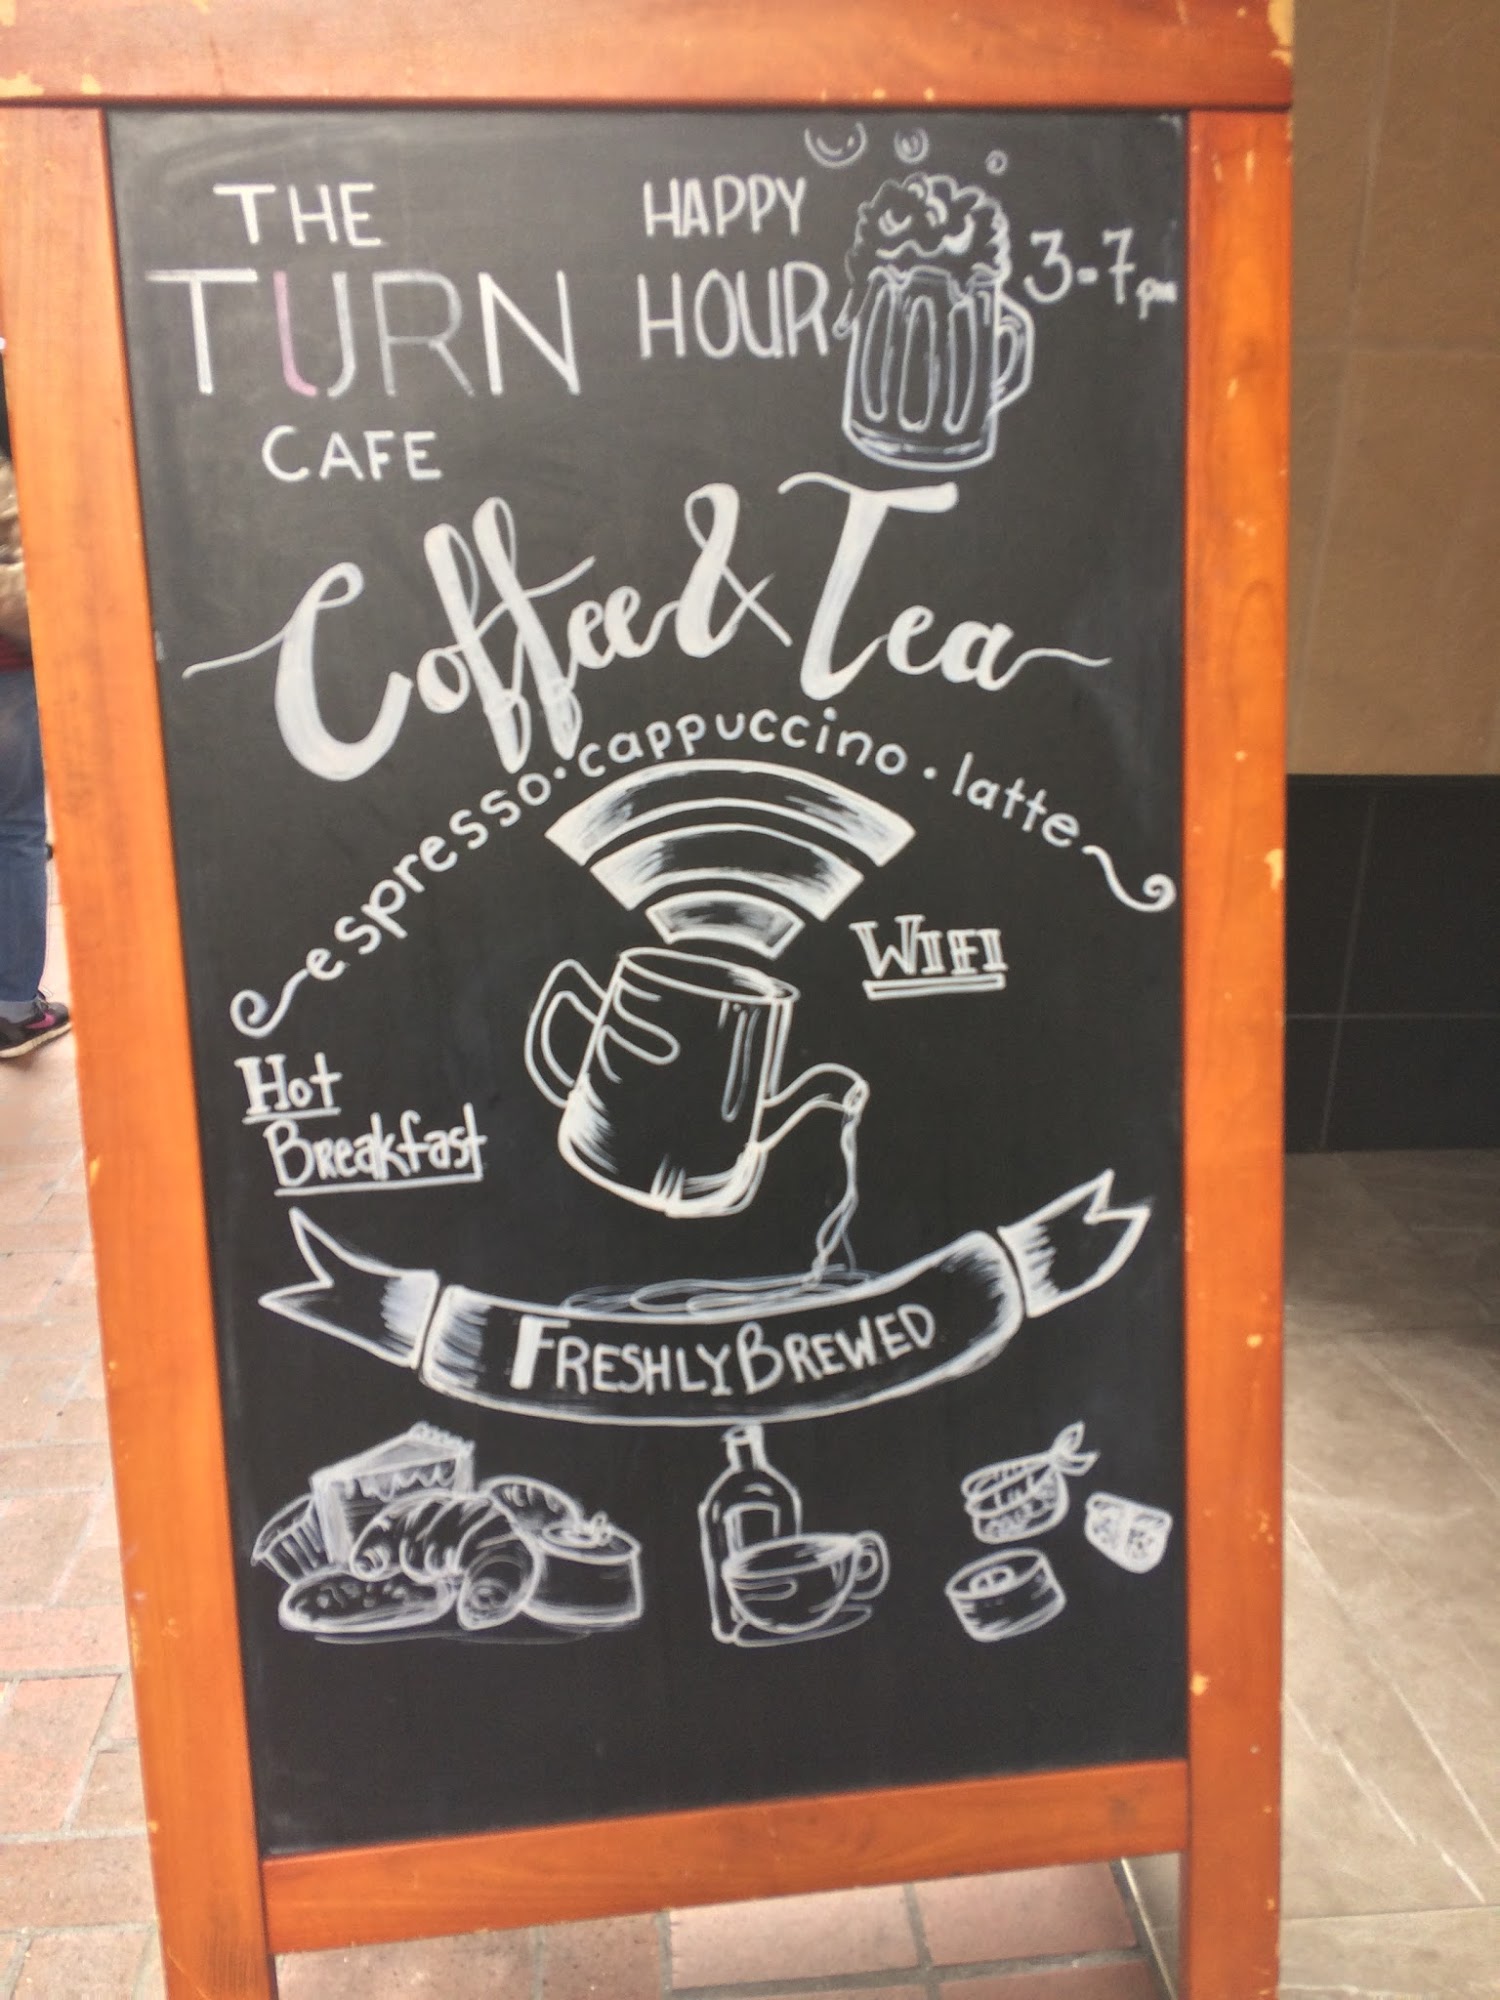 THE
TURN
CAFE
HAPPY
HOUR
3-7pm
Coffee & Tea
espresso · cappuccino · latte
WIFI
Hot
Breakfast
FRESHLY BREWED